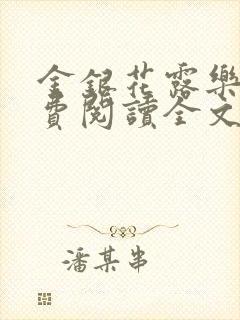 金銀花露樂
費閱讀全文
潘某串